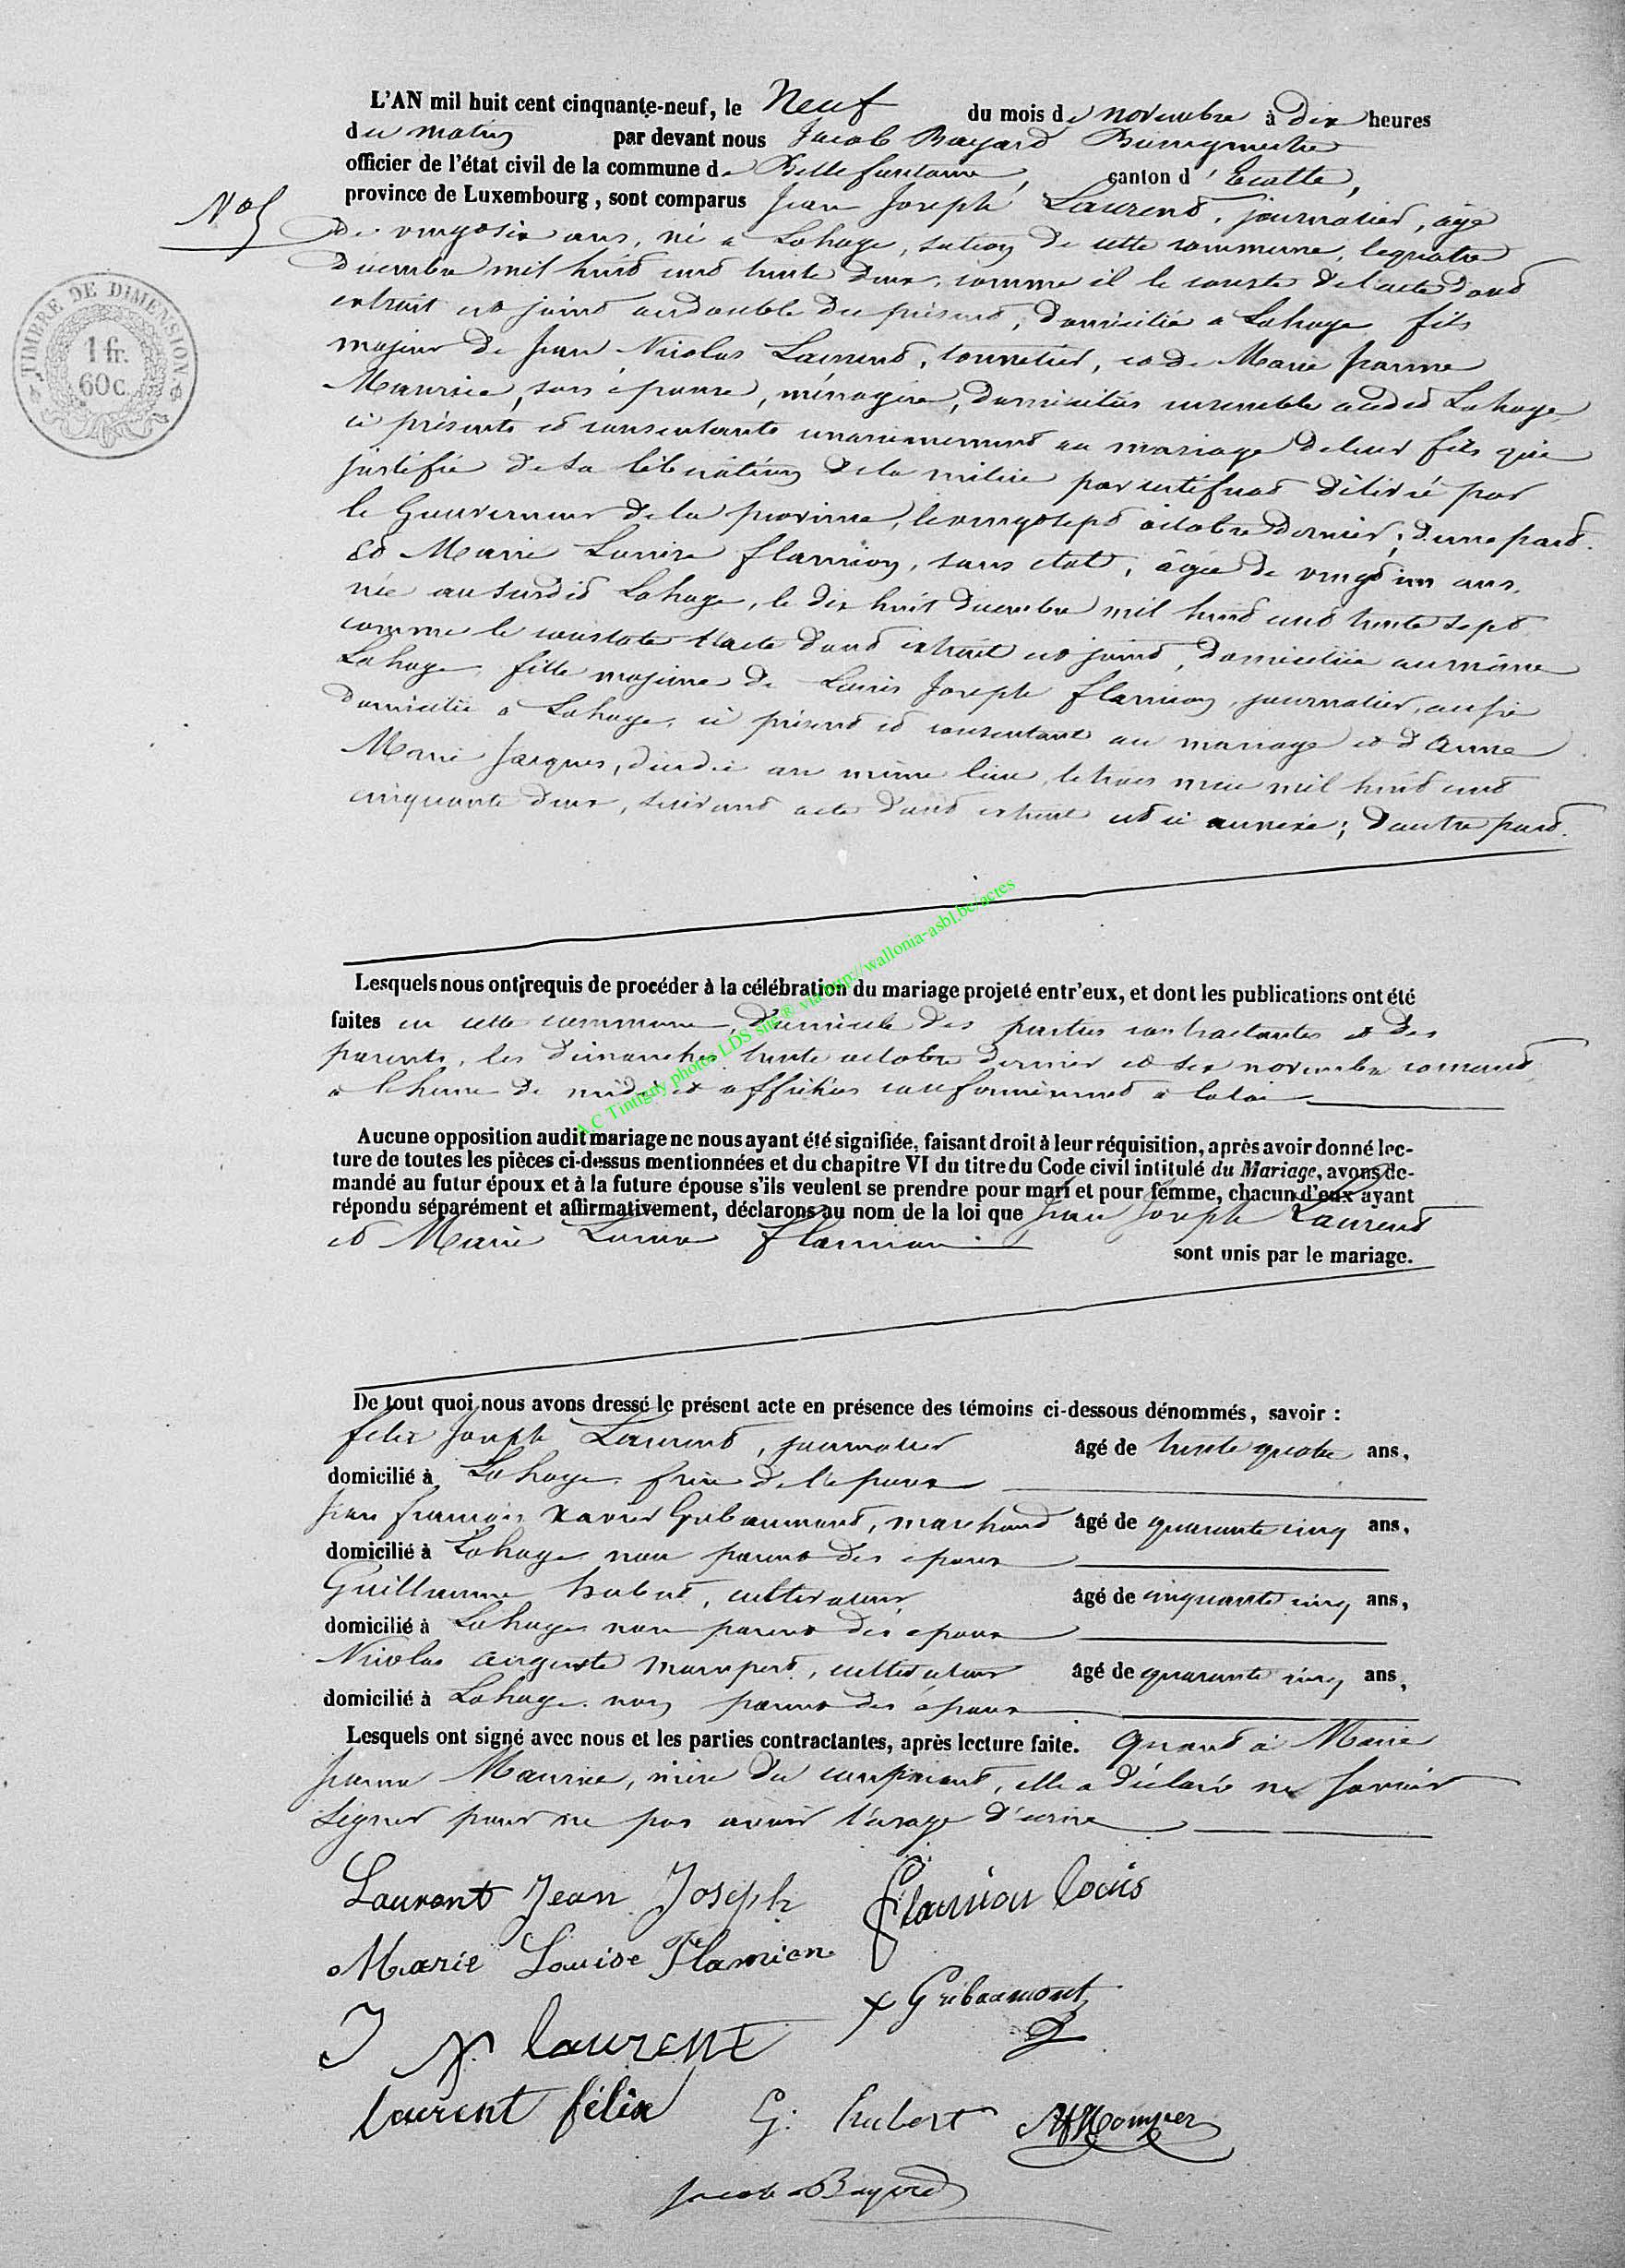 L'AN mil huit cent cinquante-neuf, le Neuf du mois de novembre à dix heures
du matin par devant nous Jacob Bayard Bourgmestre
officier de l'état civil de la commune de Bellefontaine, canton d'Etalle,
province de Luxembourg, sont comparus Jean Joseph Laurent, journalier, âgé
de vingt six ans, né à Lahage, section de cette commune, le quatre
décembre mil huit cent trente deux, comme il le conste de l'acte dont
extrait est joint au double du présent, domicilié à Lahage, fils
majeur de Jean Nicolas Laurent, et de Marie Jeanne
Maurice, son épouse, ménagère, domiciliés ensemble audit Lahage,
ci présents et consentants unanimement au mariage de leur fils qui
justifie de sa libération de la milice par certificat délivré par
le Gouverneur de la province, le vingt sept octobre dernier; d'une part.
Et Marie Louise Flamion, sans état, âgée de vingt un ans,
née au susdit Lahage, le dix huit décembre mil huit cent trente sept,
comme le constate l'acte dont extrait est joint, domiciliée au même
Lahage, fille majeure de Louis Joseph Flamion, journalier, aussi
domicilié à Lahage, ci présent et consentant au mariage et d'Anne
Marie Jacques, décédée au même lieu, le trois mai mil huit cent
cinquante deux, suivant acte dont extrait est ci annexé; d'autre part.
N° 5
TIMBRE DE DIMENSION
1 fr.
60c.
A.C Tintigny photos LDS site® via http://wallonia-asbl.be/actes
Lesquels nous ont requis de procéder à la célébration du mariage projeté entr'eux, et dont les publications ont été
faites en cette commune, domicile des parties contractantes et des
parents, les dimanches trente octobre dernier et six novembre courant,
à l'heure de midi et affichées conformément à la loi
Aucune opposition audit mariage ne nous ayant été signifiée, faisant droit à leur réquisition, après avoir donné lec-
ture de toutes les pièces ci-dessus mentionnées et du chapitre VI du titre du Code civil intitulé du Mariage, avons de-
mandé au futur époux et à la future épouse s'ils veulent se prendre pour mari et pour femme, chacun d'eux ayant
répondu séparément et affirmativement, déclarons au nom de la loi que Jean Joseph Laurent
et Marie Louise Flamion
sont unis par le mariage.
De tout quoi nous avons dressé le présent acte en présence des témoins ci-dessous dénommés, savoir :
Felix Joseph Laurent, journalier âgé de trente quatre ans,
domicilié à Lahage, frère de l'époux
Jean François Xavier Gribaumont, marchand âgé de quarante cinq ans,
domicilié à Lahage non parent des époux
Guillaume hubert, cultivateur âgé de cinquante cinq ans,
domicilié à Lahage non parent des époux
Nicolas Auguste Mompert, cultivateur âgé de quarante cinq ans,
domicilié à Lahage non parent des époux
Lesquels ont signé avec nous et les parties contractantes, après lecture faite. Quant à Marie
Jeanne Maurice, mère du comparant, elle a déclaré ne savoir
signer pour ne pas avoir l'usage d'écrire
Laurent Jean Joseph Flamion Louis
Marie Louise Flamion
X Gribaumont
J N laurent
laurent félix G. hubert
Jacob Bayard